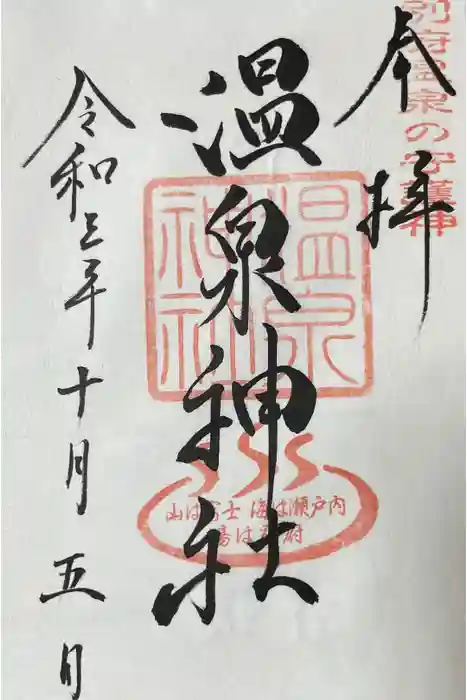 別府温泉の守護神
奉拝
温泉神社
温泉神社
山は富士 海は瀬戸内
湯は別府
令和三年十月五日